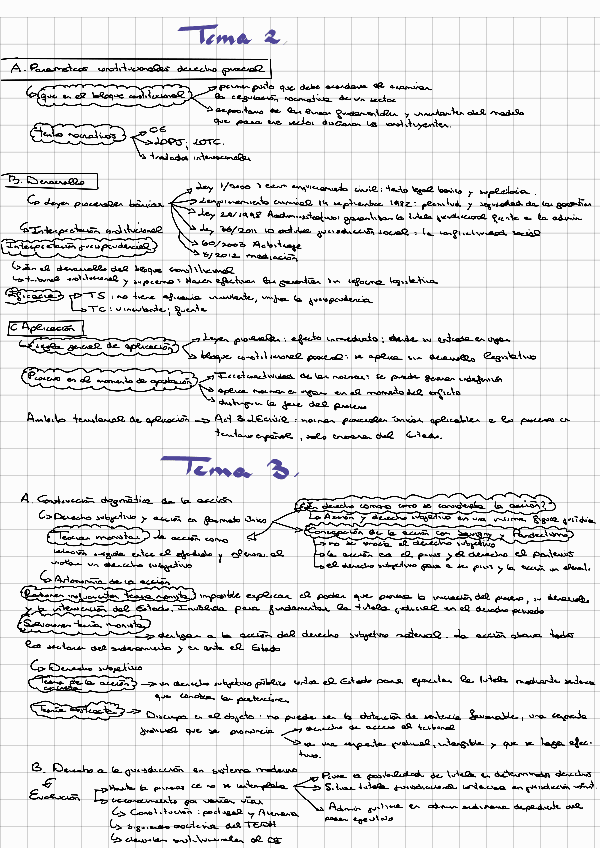 Tema 2.
A. Parámetros constitucionales derecho procesal
que es el bloque constitucional
primer punto que debe acordarse al examinar
la regulación normativa de un sector
depositario de las líneas fundamentales y vinculantes del modelo
que para ese sector los constituyentes.
Textos normativos
CE
LOPJ; LOTC.
tratados internacionales
B. Desarrollo
Leyes procesales básicas
Ley 1/2000 7 enero enjuiciamiento civil: texto legal básico y supletorio.
Ley enjuiciamiento criminal 14 septiembre 1882: de las garantías
Ley 29/1998 garantizan la tutela jurisdiccional frente a la admin
Ley 36/2011 jurisdicción social: la conflictividad social
60/2003 Arbitraje
5/2012 mediación
Interpretación constitucional
Interpretación jurisprudencial
En el desarrollo del bloque constitucional
tribunal constitucional y supremo: Hacen efectivas las garantías sin reforma legislativa
Eficacia
TS: no tiene eficacia vinculante, la jurisprudencia
TC: vinculante; fuente
C Aplicación
Regla general de aplicación
Leyes procesales: efecto inmediato: desde su entrada en vigor
bloque constitucional procesal: se aplica sin desarrollo legislativo
Proceso en el momento de aprobación
Irretroactividad de las normas: se puede generar indefensión
aplica normas en vigor en el momento del
distinguir la fase del proceso
Ámbito territorial de aplicación → Art 3 LECivil: normas procesales únicas aplicables a los procesos en
territorio español, solo emanan del Estado.
Tema 3.
A. Construcción dogmática de la acción
Derecho subjetivo y acción en
¿En derecho romano como se consideraba la acción?
Acción y derecho subjetivo en una misma figura jurídica
Teorías monistas de acción como
relación surgida entre el ofendido y ofensor al
violar un derecho subjetivo
Concepción de la acción con Savigny y Pandectismo
no se el derecho subjetivo
la acción era el prius y el derecho el posterius
el derecho subjetivo pasa a ser prius y la acción un
Autonomía de la acción
imposible explicar el poder que provoca la iniciación del proceso, su desarrollo
y la intervención del Estado. Inválida para fundamentar la tutela judicial en el derecho privado
teoría monista
desligan a la acción del derecho subjetivo material. La acción abarca todos
los sectores del ordenamiento y es ante el Estado
Derecho subjetivo
Teoría de la acción
concreta
un derecho subjetivo público contra el Estado para ejecutar la tutela mediante sentencia
que la pretensión.
Teoría abstracta
Discrepa en el objeto: no puede ser la obtención de sentencia favorable, una respuesta
judicial que se pronuncia
derecho de acceso al tribunal
es una respuesta judicial, intangible y que se haga efec-
tiva.
B. Derecho a la jurisdicción en sistema moderno
Evolución
Hasta la primera CE no se contemplaba
reconocimiento por varias vías
Constitución: portugal y Alemania
doctrina del TEDH
constitucionales al CE
Priva a posibilidad de tutela en determinados derechos
Sitúa tutela jurisdiccional ordinaria en jurisdicción
Admin justicia en admin ordinaria dependiente del
poder ejecutivo